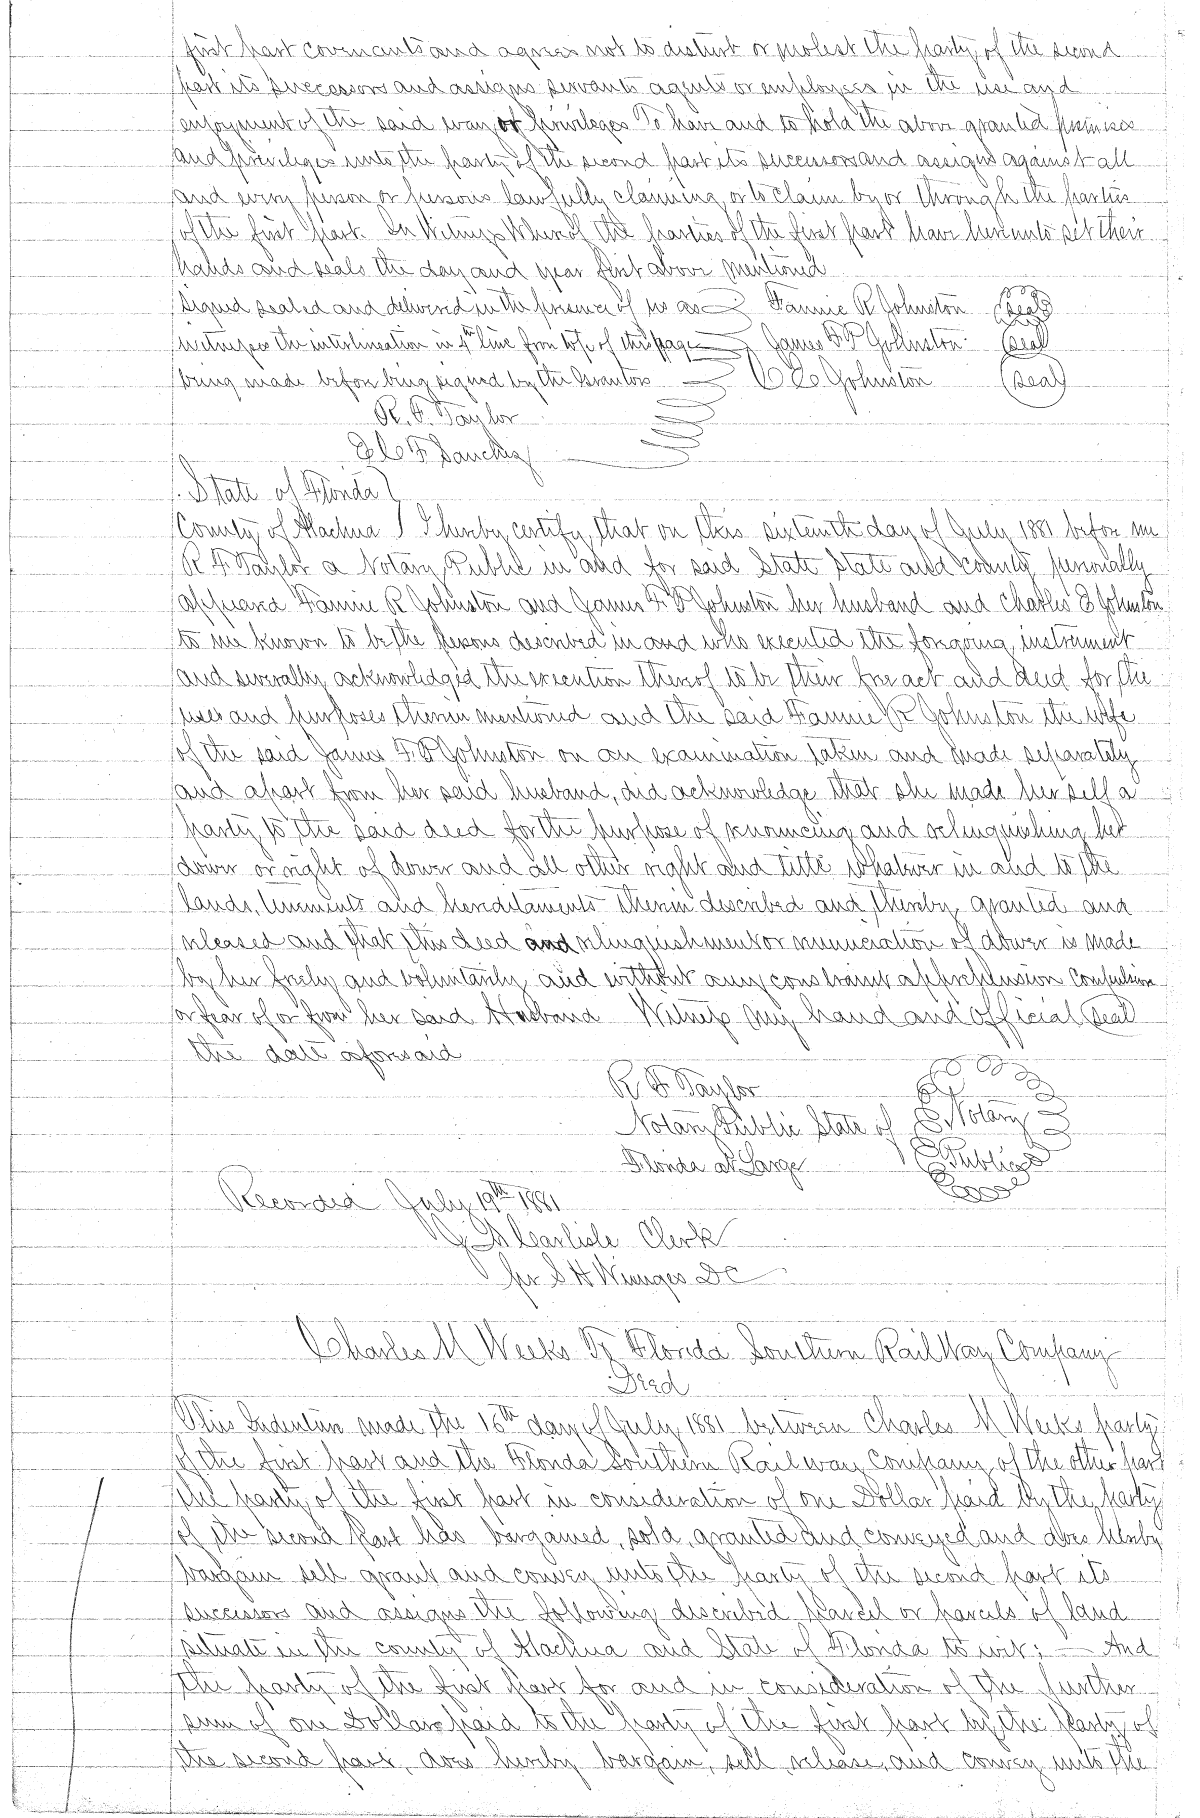 first part covenants and agrees not to disturb or molest the party of the second
part its successors and assigns servants agents or employees in the use and
enjoyment of the said way or privileges To have and to hold the above granted premises
and privileges unto the party of the second part its successors and assigns against all
and every person or persons lawfully claiming or to claim by or through the parties
of the first part. In Witness Whereof the parties of the first part have hereunto set their
hands and seals the day and year first above mentioned
Signed sealed and delivered in the presence of us as Fannie R Johnston (seal)
witnesses the interlineation in 4th line from top of this page James F P Johnston (seal)
being made before being signed by the Grantors C E Johnston (seal)
R. F. Taylor
E C F Sanchez
State of Florida }
County of Alachua } I hereby certify that on this sixteenth day of July 1881 before me
R F Taylor a Notary Public in and for said State State and County personally
appeared Fannie R Johnston and James F P Johnston her husband and Charles E Johnston
to me known to be the persons described in and who executed the forgoing instrument
and severally acknowledged the execution thereof to be their free act and deed for the
uses and purposes therein mentioned and the said Fannie R Johnston the wife
of the said James F P Johnston on an examination taken and made separately
and apart from her said husband, did acknowledge that she made herself a
party to the said deed for the purpose of renouncing and relinquishing her
dower or right of dower and all other right and title whatever in and to the
lands, tenements and hereditaments therein described and thereby granted and
released and that this deed and relinquishment or renunciation of dower is made
by her freely and voluntarily and without any constraint apprehension compulsion
or fear of or from her said Husband Witness my hand and official seal
the date aforesaid
R F Taylor
Notary Public State of Notary
Florida at Large Public
Recorded July 19th 1881
J A Carlisle Clerk
per S H Wienges DC
Charles M Weeks To Florida Southern RailWay Company
Deed
This Indenture made the 16th day of July 1881 between Charles M Weeks party
of the first part and the Florida Southern Railway Company of the other part
the party of the first part in consideration of one Dollar paid by the party
of the second part has bargained, sold, granted and conveyed and does hereby
bargain sell grant and convey unto the party of the second part its
successors and assigns the following described parcel or parcels of land
situate in the county of Alachua and State of Florida to wit; — And
the party of the first part for and in consideration of the further
sum of one Dollar paid to the party of the first part by the party of
the second part, does hereby bargain, sell, release, and convey unto the